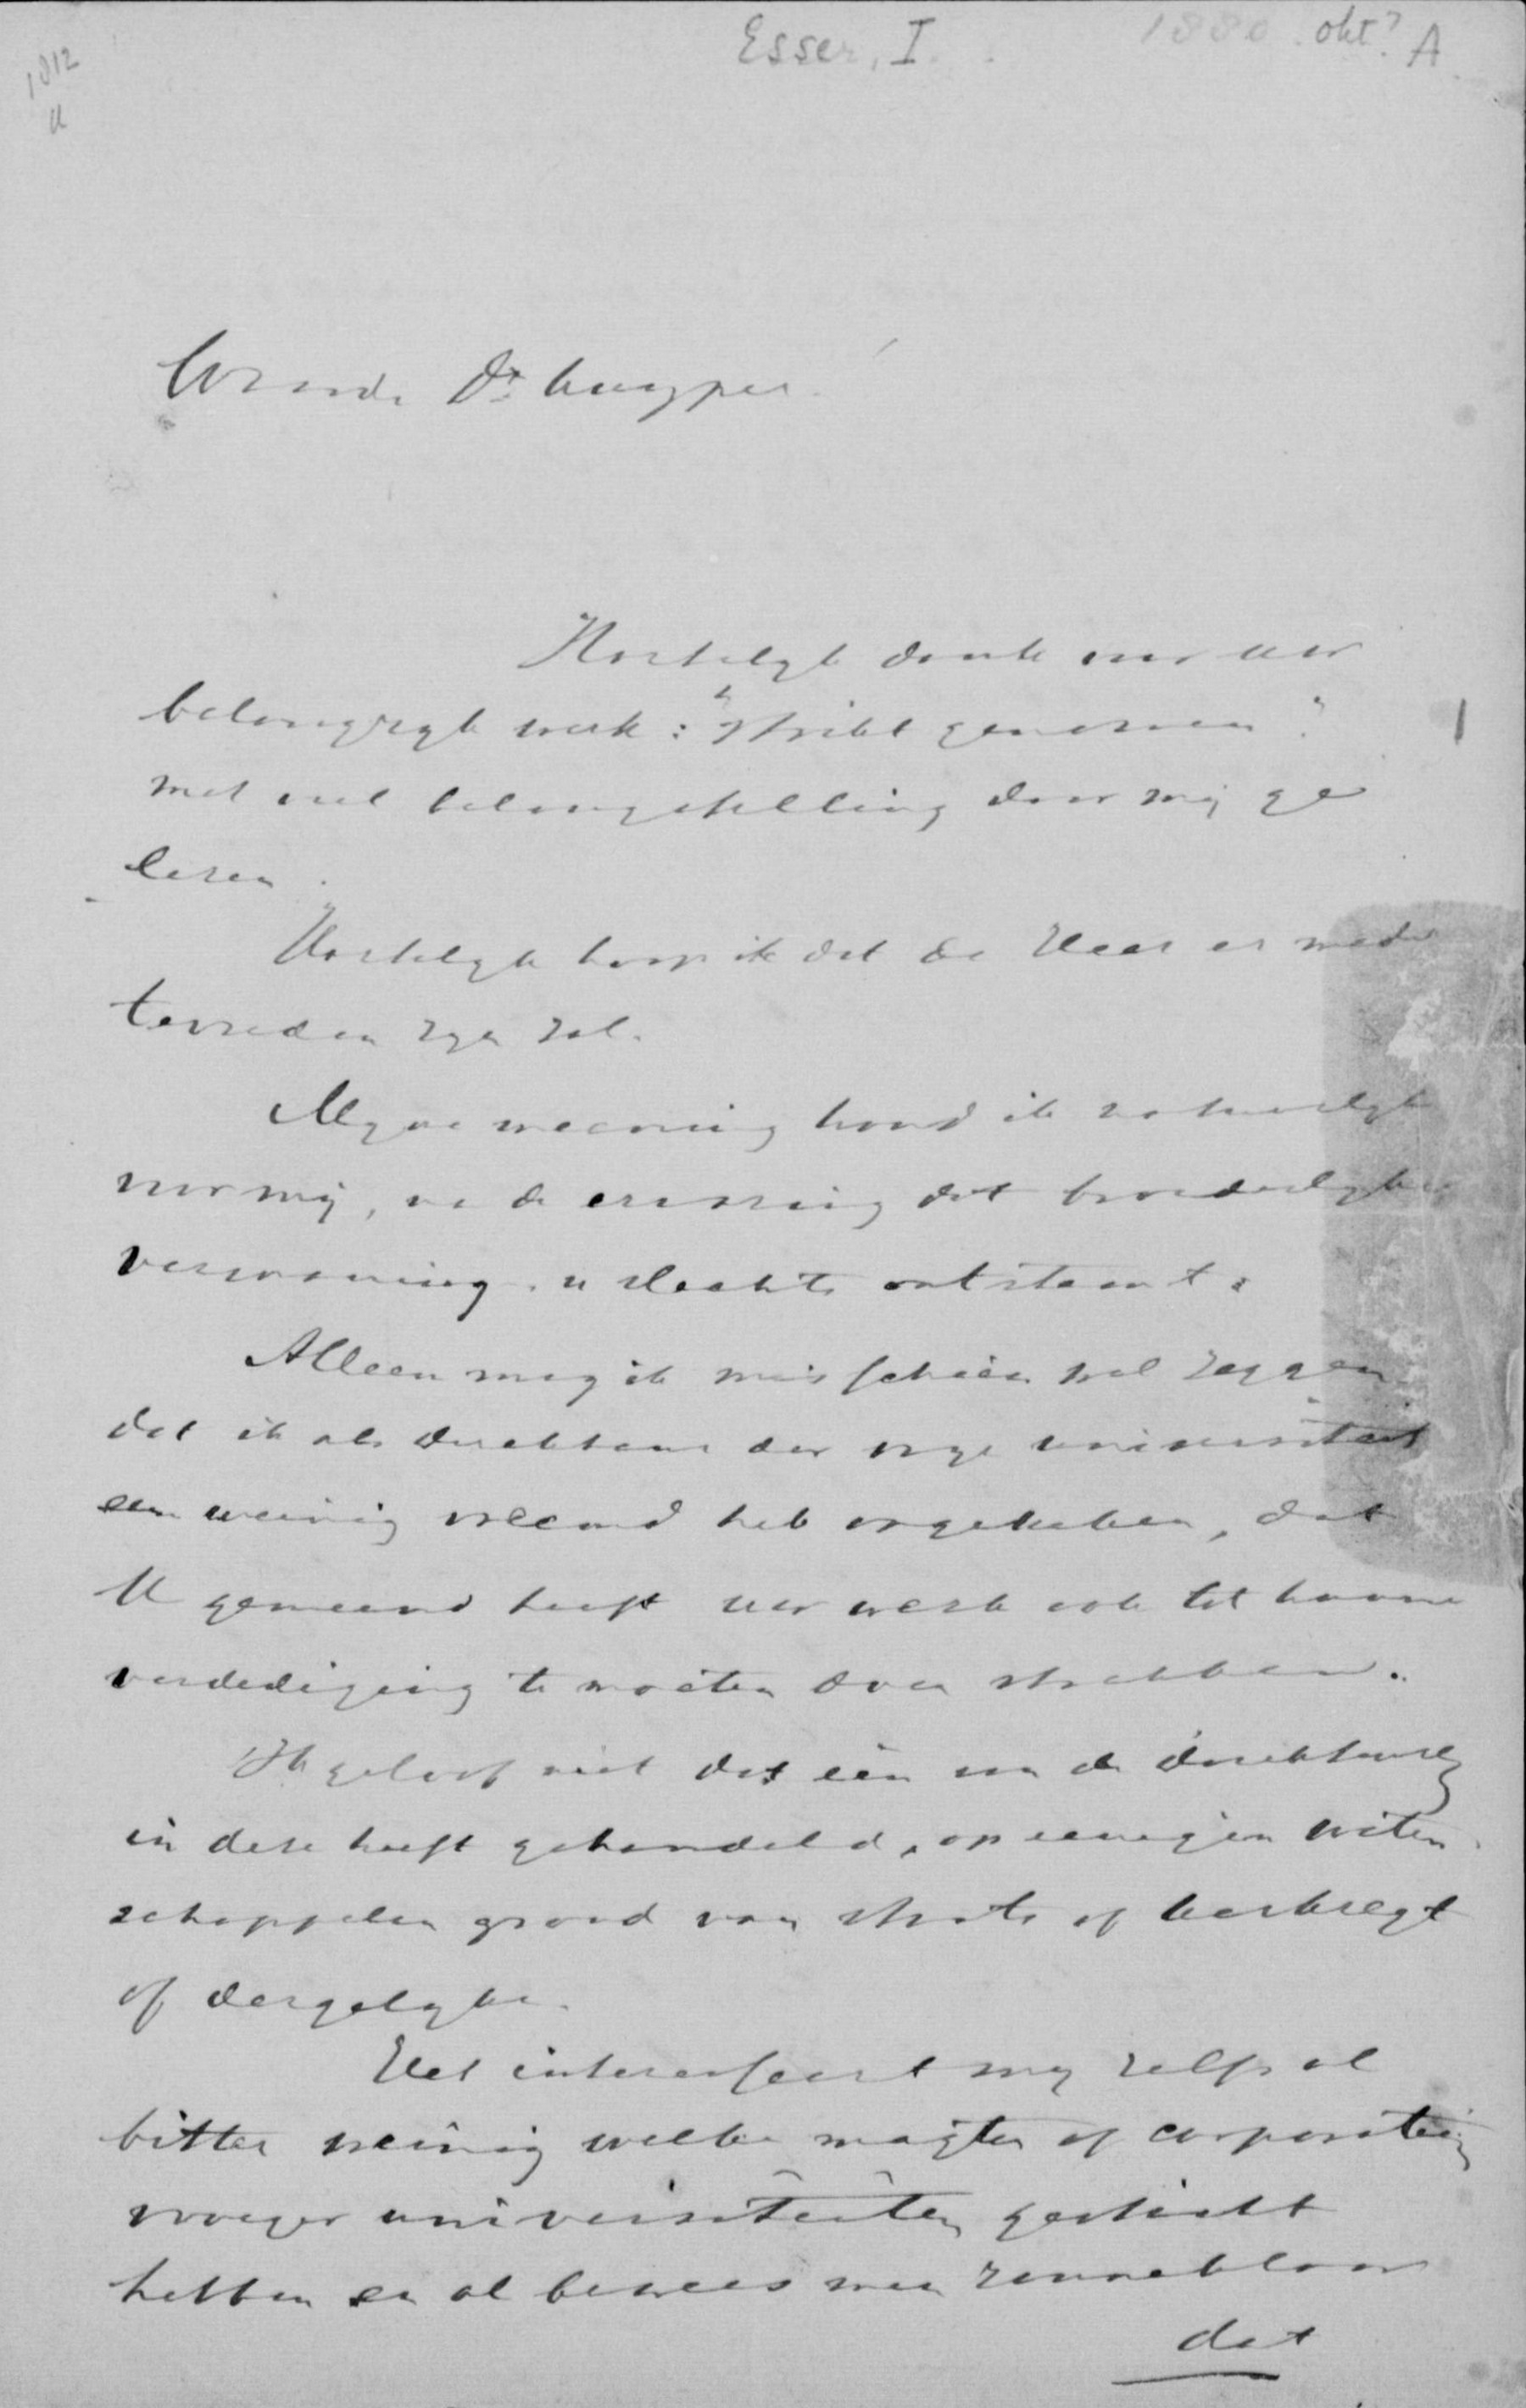 1812
U
Esser, I.
1880. okt? A
Waarde Dr. Kuyper.
Hartelyk dank voor uw
belangryk werk: "Strikt genomen"
met veel belangstelling door my ge
lezen.
Hartelyk hoop ik dat de Heer er mede
tevreden zyn zal.
Myne meening houd ik natuurlyk
voor my, na de ervaring dat broederlyke
vermaning u slechts ontstemt.
Alleen mag ik misschien wel zeggen
dat ik als direkteur der vrye universiteit
een weinig vreemd heb opgekeken, dat
U gemeend heeft uw werk ook tot hunne
verdediging te moeten doen strekken.
Ik geloof niet dat één van de direkteuren
in deze heeft gehandeld, op eenigen weten
schappelen grond van staats of kerkregt
of dergelyke.
Het interesseert my zelfs al
bitter weinig welke magten of corporatien
vroeger universiteiten gesticht
hebben en al bewees men zonneklaar
dat